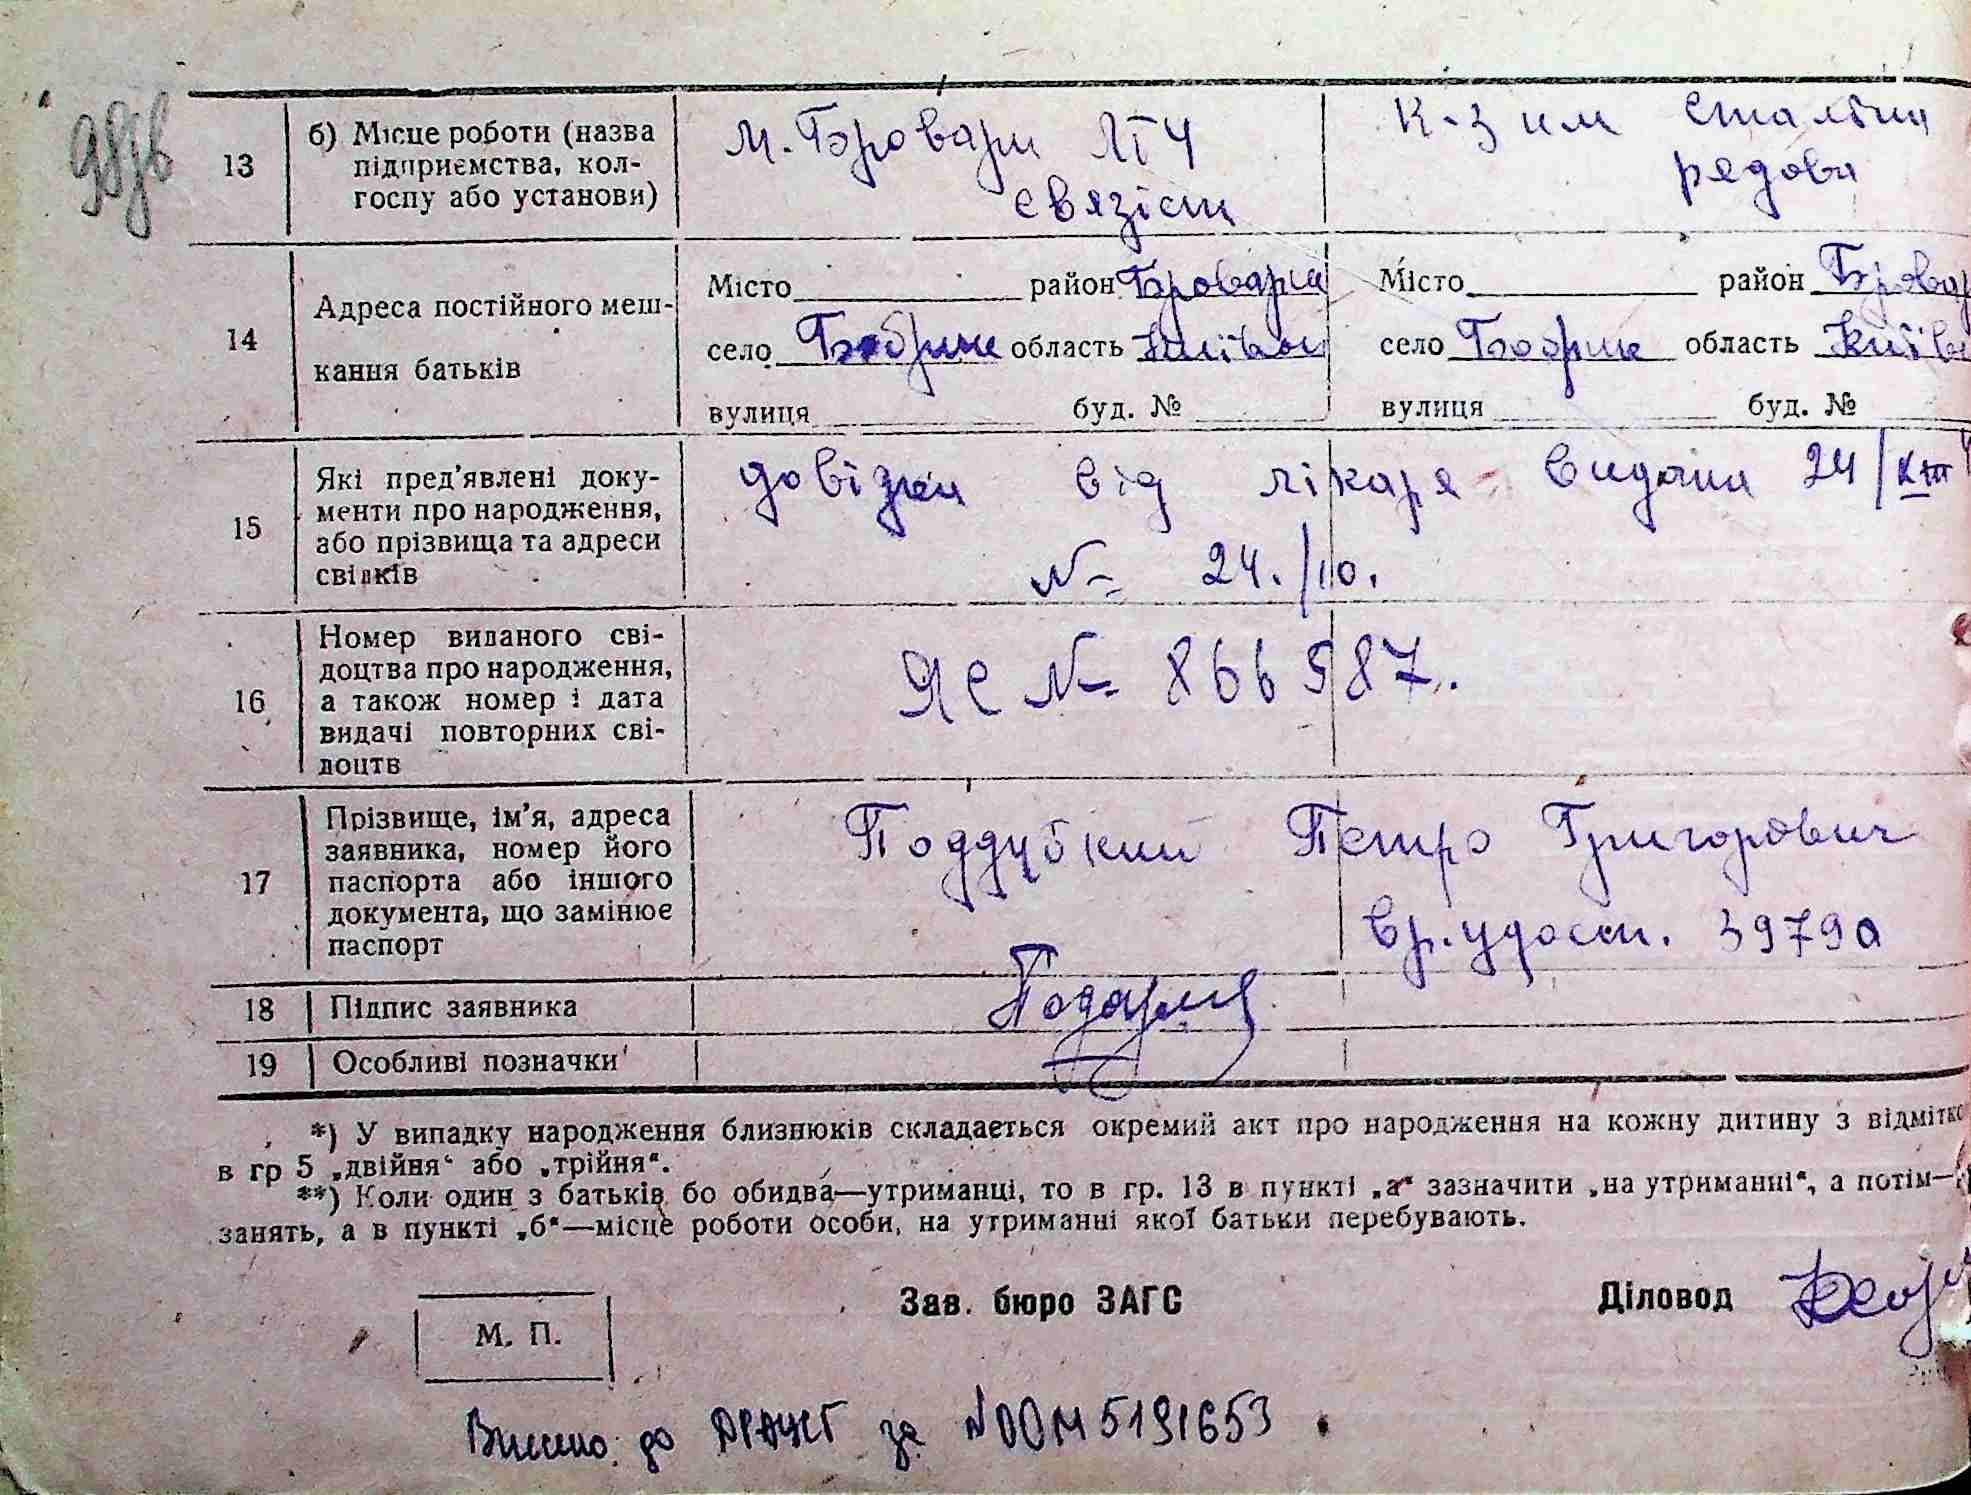 13 б) Місце роботи (назва підприємства, колгоспу або установи)
м. Бровари ЛТЧ
связіст
к-з им Сталіна
рядова
14 Адреса постійного мешкання батьків
Місто район Бровари
село Бобрик область Київськ
вулиця буд. №
Місто район Бровар
село Бобрик область Київ
вулиця буд. №
15 Які пред'явлені документи про народження, або прізвища та адреси свідків
довізка від лікаря видана 24/XIII
№ 24./10.
16 Номер виданого свідоцтва про народження, а також номер і дата видачі повторних свідоцтв
ЯС № 866587.
17 Прізвище, ім'я, адреса заявника, номер його паспорта або іншого документа, що замінює паспорт
Поддубний Петро Григорович
вр. удост. 39790
18 Підпис заявника
19 Особливі позначки
*) У випадку народження близнюків складається окремий акт про народження на кожну дитину з відмітко
в гр 5 „двійня“ або „трійня“.
**) Коли один з батьків бо обидва—утриманці, то в гр. 13 в пункті „а“ зазначити „на утриманні“, а потім—
занять, а в пункті „б“—місце роботи особи, на утриманні якої батьки перебувають.
Зав. бюро ЗАГС
Діловод
М. П.
Внесено до ДРАЦСГ за №00М5191653